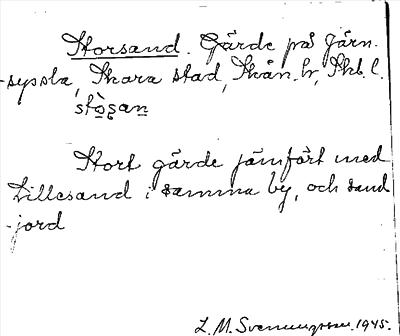 Storsand. Gärde på Järn-
-syssla, Skara stad, Skån. hr, Skb. l.
stòsan
Stort gärde jämfört med
Lillesand i samma by, och sand
-jord
L. M. Svenungsson. 1945.